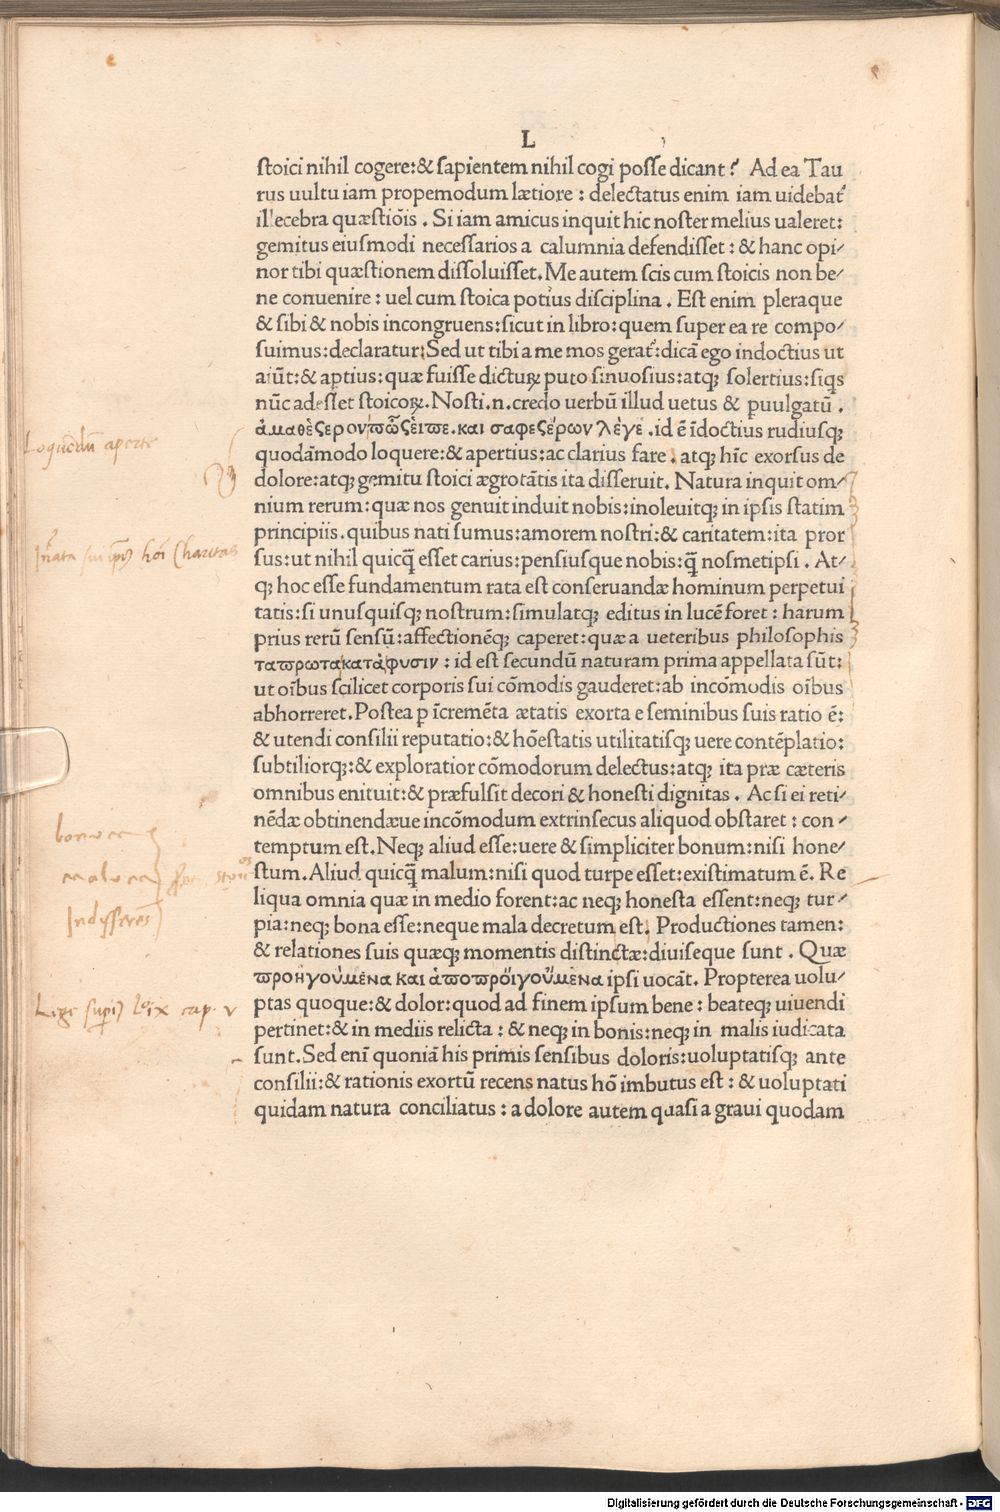 L
stoici nihil cogere:& sapientem nihil cogi posse dicant? Ad ea Tau
rus uultu iam propemodum lætiore : delectatus enim iam uidebat᷑
il'ecebra quæstiõis . Si iam amicus inquit hic noster melius ualeret:
gemitus eiusmodi necessarios a calumnia defendisset : & hanc opi-
nor tibi quæstionem dissoluisset. Me autem scis cum stoicis non be-
ne conuenire : uel cum stoica potius disciplina . Est enim pleraque
& sibi & nobis incongruens:sicut in libro:quem super ea re compo-
suimus:declaratur:Sed ut tibi a me mos gerat᷑:dicã ego indoctius ut
aiũt:& aptius:quæ fuisse dictuꝝ puto sinuosius:atqꝫ solertius:siqs
nũc adesset stoicoꝝ. Nosti.n.credo uerbũ illud uetus & puulgatũ .
ἀμαθὲςερονπῶςἐιπε. και σαφεςἐρων λἐγε .id ẽ ĩdoctius rudiusqꝫ
quodãmodo loquere:& apertius:ac clarius fare . atqꝫ hĩc exorsus de
dolore:atqꝫ gemitu stoici ægrotãtis ita disseruit. Natura inquit om-
nium rerum:quæ nos genuit induit nobis:inoleuitqꝫ in ipsis statim
principiis.quibus nati sumus:amorem nostri:& caritatem:ita pror
sus:ut nihil quicq̃ esset carius:pensiusque nobis:q̃ nosmetipsi . At-
qꝫ hoc esse fundamentum rata est conseruandæ hominum perpetui
tatis:si unusquisqꝫ nostrum:simulatqꝫ editus in lucẽ foret : harum
prius rerũ sensũ:affectionẽqꝫ caperet:quæ a ueteribus philosophis
ταπρωτακατὰφυσιν : id est secundũ naturam prima appellata sũt:
ut oĩbus scilicet corporis sui cõmodis gauderet:ab incõmodis oĩbus
abhorreret. Postea ꝑ ĩcremẽta ætatis exorta e seminibus suis ratio ẽ:
& utendi consilii reputatio:& hõestatis utilitatisqꝫ uere contẽplatio:
subtiliorqꝫ:& exploratior cõmodorum delectus:atqꝫ ita præ cæteris
omnibus enituit:& præfulsit decori & honesti dignitas . Ac si ei reti-
nẽdæ obtinendæue incõmodum extrinsecus aliquod obstaret : con -
temptum est. Neqꝫ aliud esse:uere & simpliciter bonum:nisi hone-
stum. Aliud quicq̃ malum:nisi quod turpe esset:existimatum ẽ. Re
liqua omnia quæ in medio forent:ac neqꝫ honesta essent:neqꝫ tur-
pia:neqꝫ bona esse:neque mala decretum est. Productiones tamen:
& relationes suis quæqꝫ momentis distinctæ:diuiseque sunt . Quæ
προηγοὐμενα και ἀποπροἱγοὔμενα ipsi uocãt. Propterea uolu-
ptas quoque:& dolor:quod ad finem ipsum bene : beateqꝫ uiuendi
pertinet:& in mediis relicta : & neqꝫ in bonis:neqꝫ in malis iudicata
sunt. Sed enĩ quoniã his primis sensibus doloris:uoluptatisqꝫ ante
consilii:& rationis exortũ recens natus hõ imbutus est : & uoluptati
quidam natura conciliatus : a dolore autem quasi a graui quodam
aperte
Charitas
Indifferens
cap. v
Digitalisierung gefördert durch die Deutsche Forschungsgemeinschaft - DFG